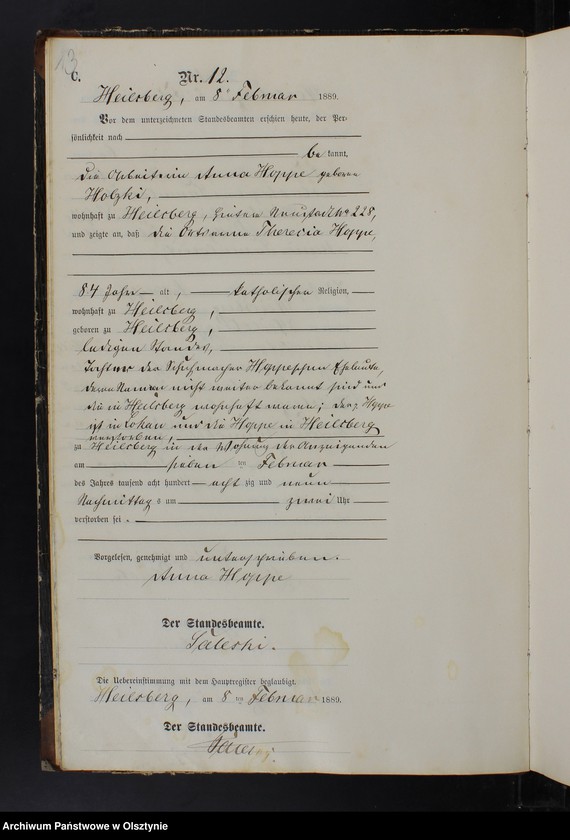 13
C.
Nr. 12.
Heilsberg, am 8 Februar 1889.
Vor dem unterzeichneten Standesbeamten erschien heute, der Per-
sönlichkeit nach
bekannt,
die Arbeiterin Anna Hoppe geborene
Holzki,
wohnhaft zu Heilsberg, Hinten Neustadt No 228,
und zeigte an, daß die Ortsarme Theresia Hoppe,
84 Jahre alt, katholischer Religion,
wohnhaft zu Heilsberg,
geboren zu Heilsberg,
ledigen Standes,
Tochter der Schuhmacher Hoppeschen Eheleute,
deren Namen nicht weiter bekannt sind und
die in Heilsberg wohnhaft waren; der p. Hoppe
ist in Lokau und die Hoppe in Heilsberg
verstorben,
zu Heilsberg in der Wohnung der Anzeigenden
am sieben ten Februar
des Jahres tausend acht hundert achtzig und neun
Nachmittags um zwei Uhr
verstorben sei.
Vorgelesen, genehmigt und unterschrieben.
Anna Hoppe
Der Standesbeamte.
Die Uebereinstimmung mit dem Hauptregister beglaubigt.
Heilsberg, am 8 ten Februar 1889.
Der Standesbeamte.
Archiwum Państwowe w Olsztynie